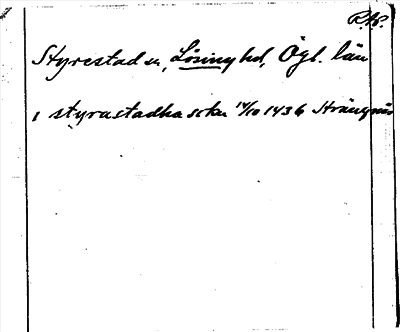 R.A.P.
Styrestad sn, Lösings hd, Ögl. län
i styrastadha sokn 14/10 1436 Strängnäs